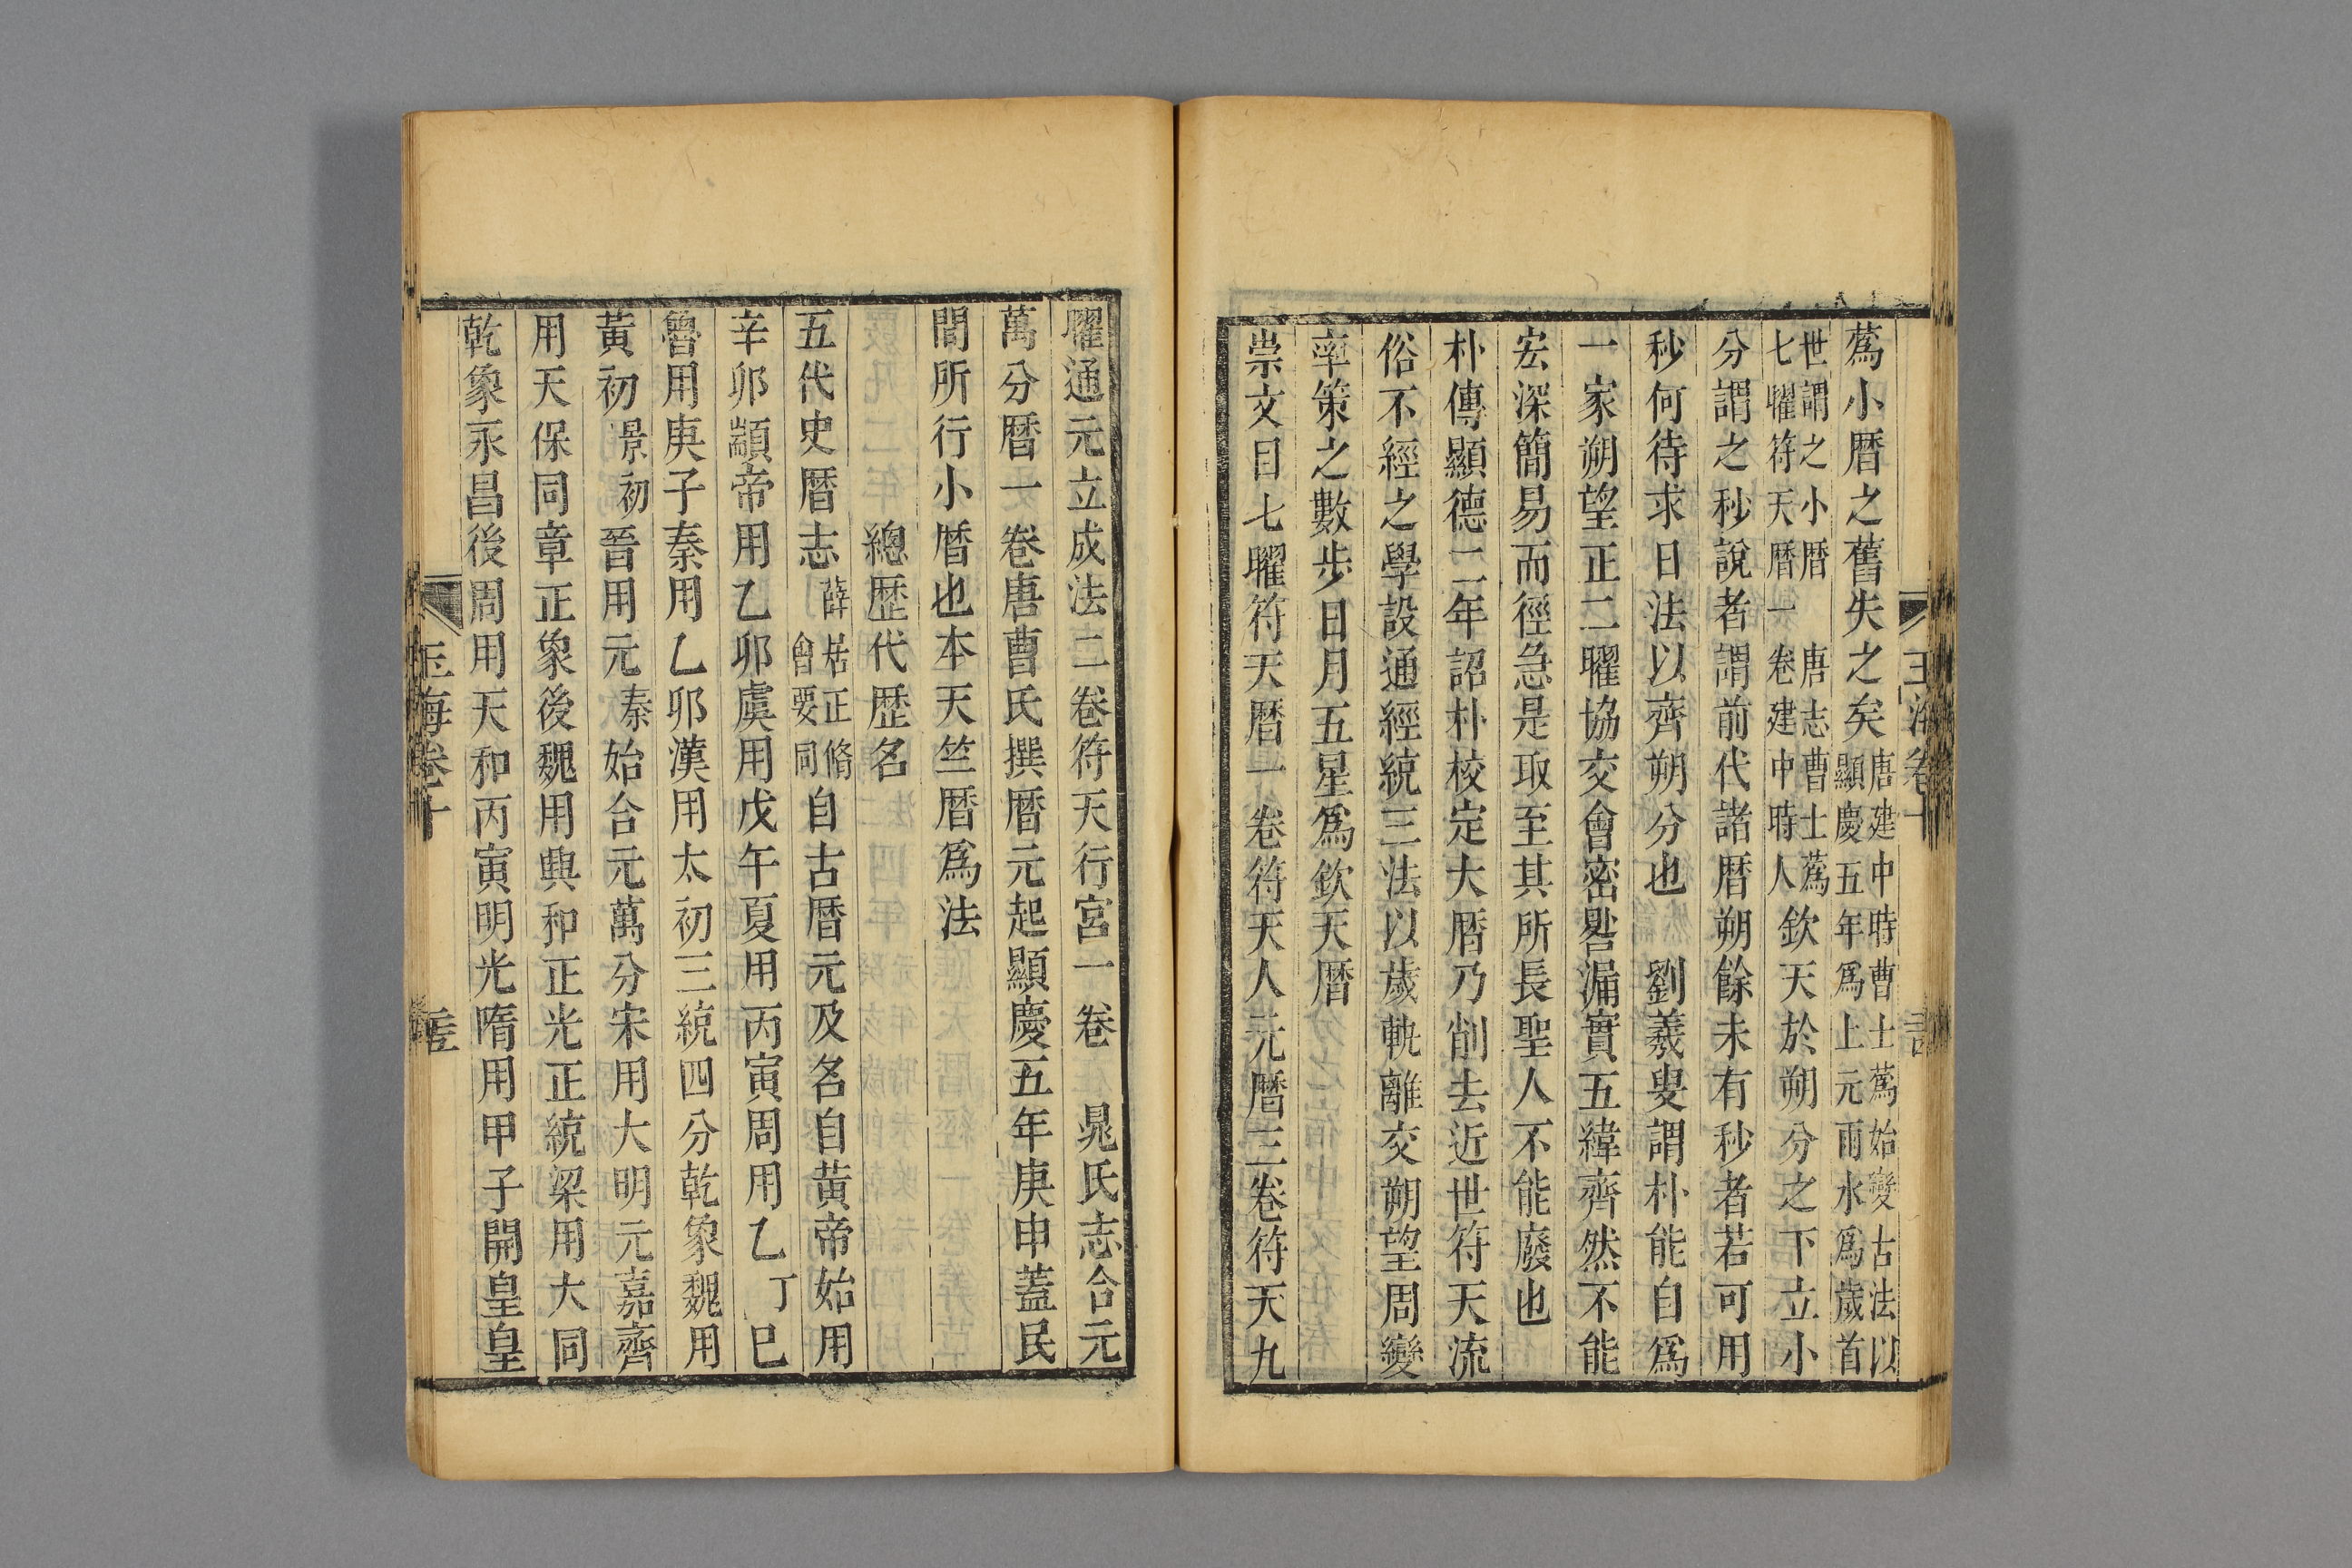 蔿小暦之舊失之矣唐建中時曹士蔿始變古法以顯慶五年爲上元雨水爲歲首
世謂之小暦唐志曹士蔿七曜符天暦一卷建中時人欽天於朔分之下立小
分謂之秒說者謂前代諸暦朔餘未有秒者若可用
秒何待求日法以齊朔分也劉羲叟謂朴能自爲
一家朔望正二曜協交會密器漏實五緯齊然不能
宏深簡易而徑急是取至其所長聖人不能廢也
朴傳顯德二年詔朴校定大暦乃削去近世符天流
俗不經之學設通經統三法以歲軌離交朔望周變
率策之數步日月五星爲欽天暦
崇文目七曜符天暦一卷符天人元暦三卷符天九
曜通元立成法二卷符天行宮一卷 晁氏志合元
萬分暦一卷唐曹氏撰暦元起顯慶五年庚申蓋民
間所行小暦也本天竺暦爲法
總歷代歷名
五代史暦志薛居正脩會要同自古暦元及名自黃帝始用
辛卯顓帝用乙卯虞用戊午夏用丙寅周用乙丁巳
魯用庚子秦用乙卯漢用太初三統四分乾象魏用
黃初景初晉用元秦始合元萬分宋用大明元嘉齊
用天保同章正象後魏用興和正光正統梁用大同
乾象永昌後周用天和丙寅明光隋用甲子開皇皇
玉海卷十
玉海卷十